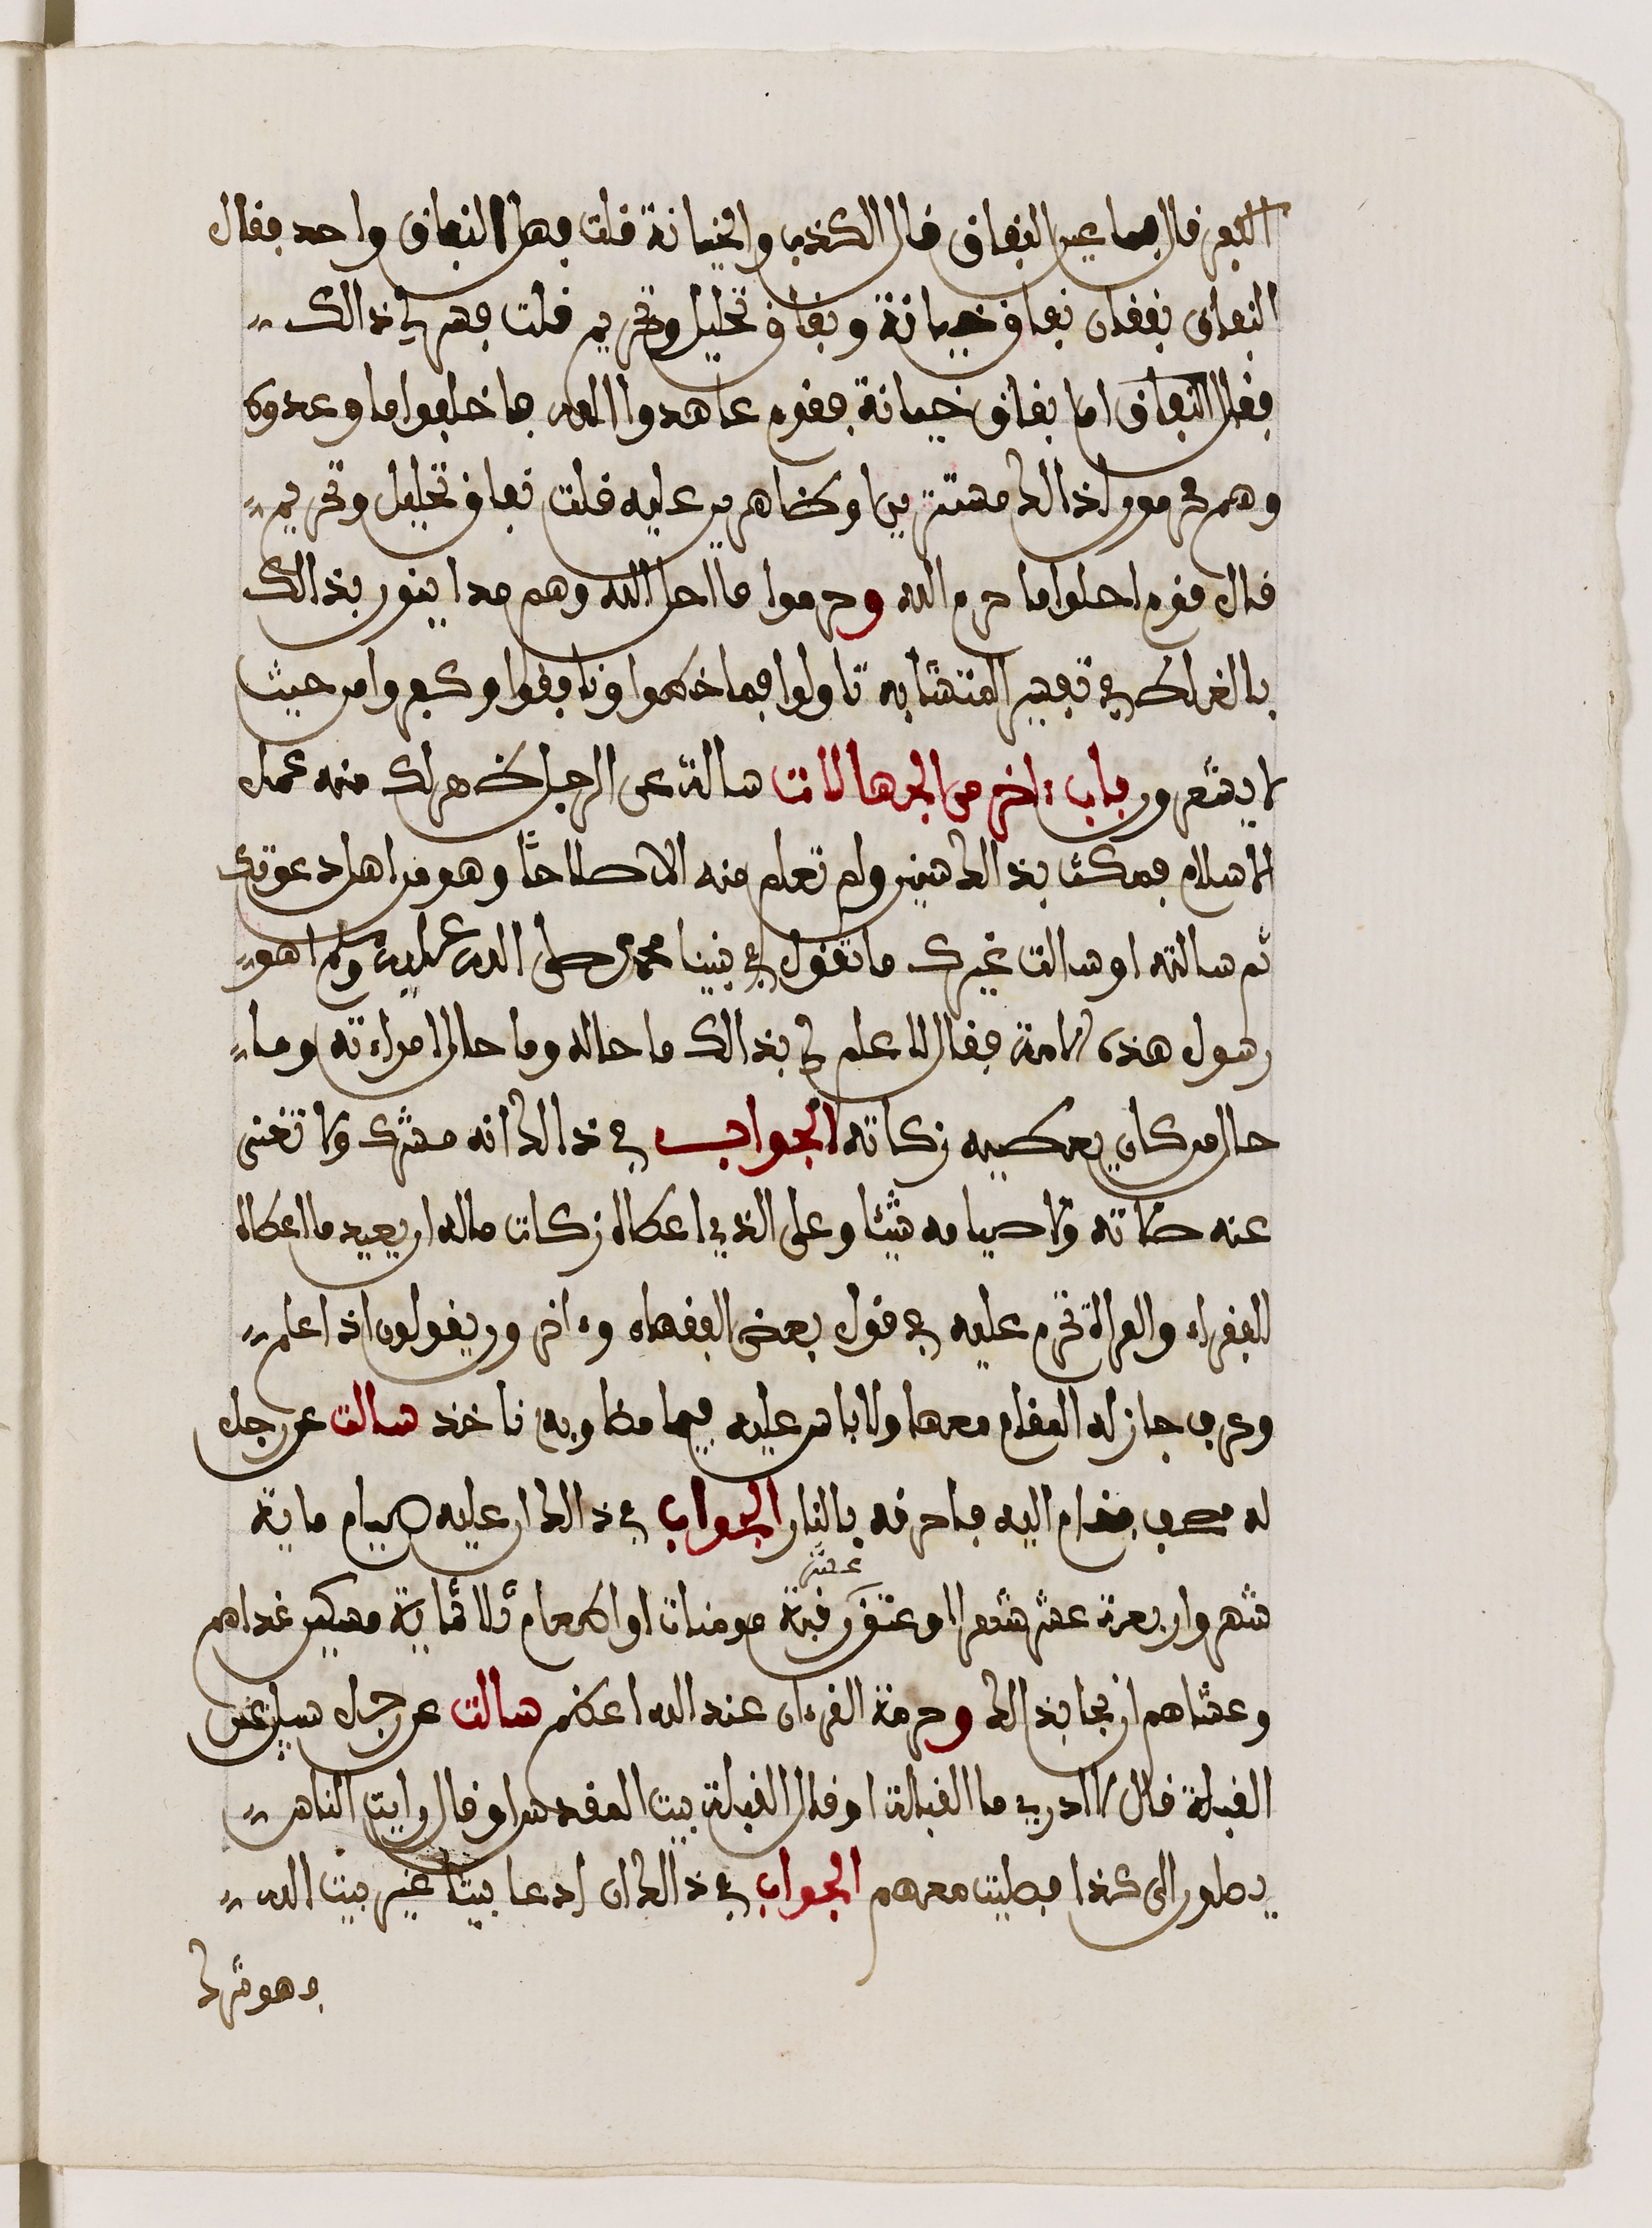 الكفر قال فما عين النفاق قال الكذب والخيانة قلت فهل النفاق واحد فقال
النفاق نفقان نفاق خيانة ونفاق تحليل وتحريم قلت فسر لي ذالك
فقال النفاق اما نفاق خيانة فقوم عاهدوا الله فاخلفوا ما وعدوه
وهم مقرون اذالك مستترين او ظاهرين عليه قلت نفاق تحليل وتحريم
قال قوم احلوا ما حرم الله وحرموا ما احل الله وهم مداينون بذالك
بالغلط في تفسير المتشابه تاولوا فيما خطوا ونافقوا وكفروا من حيث
لا يشعرون باب ءاخر من الجهالات سالت عن الرجل ظهر لك منه عمل
الاسلام فمكث بذالك سنين ولم تعلم منه الا صلاحا وهو من اهل دعوتك
ثم سالته او سالت غيرك ما تقول في نبينا محمد صلى الله عليه وسلم اهو
رسول هذه الامة فقال لا علم لي بذالك ما حاله وما حال امراءته وما
حال من كان يعطيه زكاته الجواب في ذالك انه مشرك ولا تغني
عنه صلاته ولا صيامه شيئا وعلى الذي اعطاه زكات ماله ان يعيد ما اعطاه
للفقراء والمراة تحرم عليه في قول بعض الفقهاء وءاخرون يقولون اذا علم
وعرف جاز له المقام معها ولا باس عليه فيما مضا وبه ناخذ سالت عن رجل
له مصحف فقام اليه فاحرقه بالنار الجواب في ذالك ان عليه صيام ماية
شهر واربعة عشر شهرا او عتق رقبة عشر مومنات او اطعام ثلاثماية مسكين غداهم
وعشاهم ان نجا بذالك وحرمة القرءان عند الله اعظم سالت عن رجل سيل عن
القبلة قال لا ادري ما القبلة او قال القبلة بيت المقدس او قال رايت الناس
يصلون الى كذا فصليت معهم الجواب في ذالك ان ادعا بيتا غير بيت الله
فهو مشرك